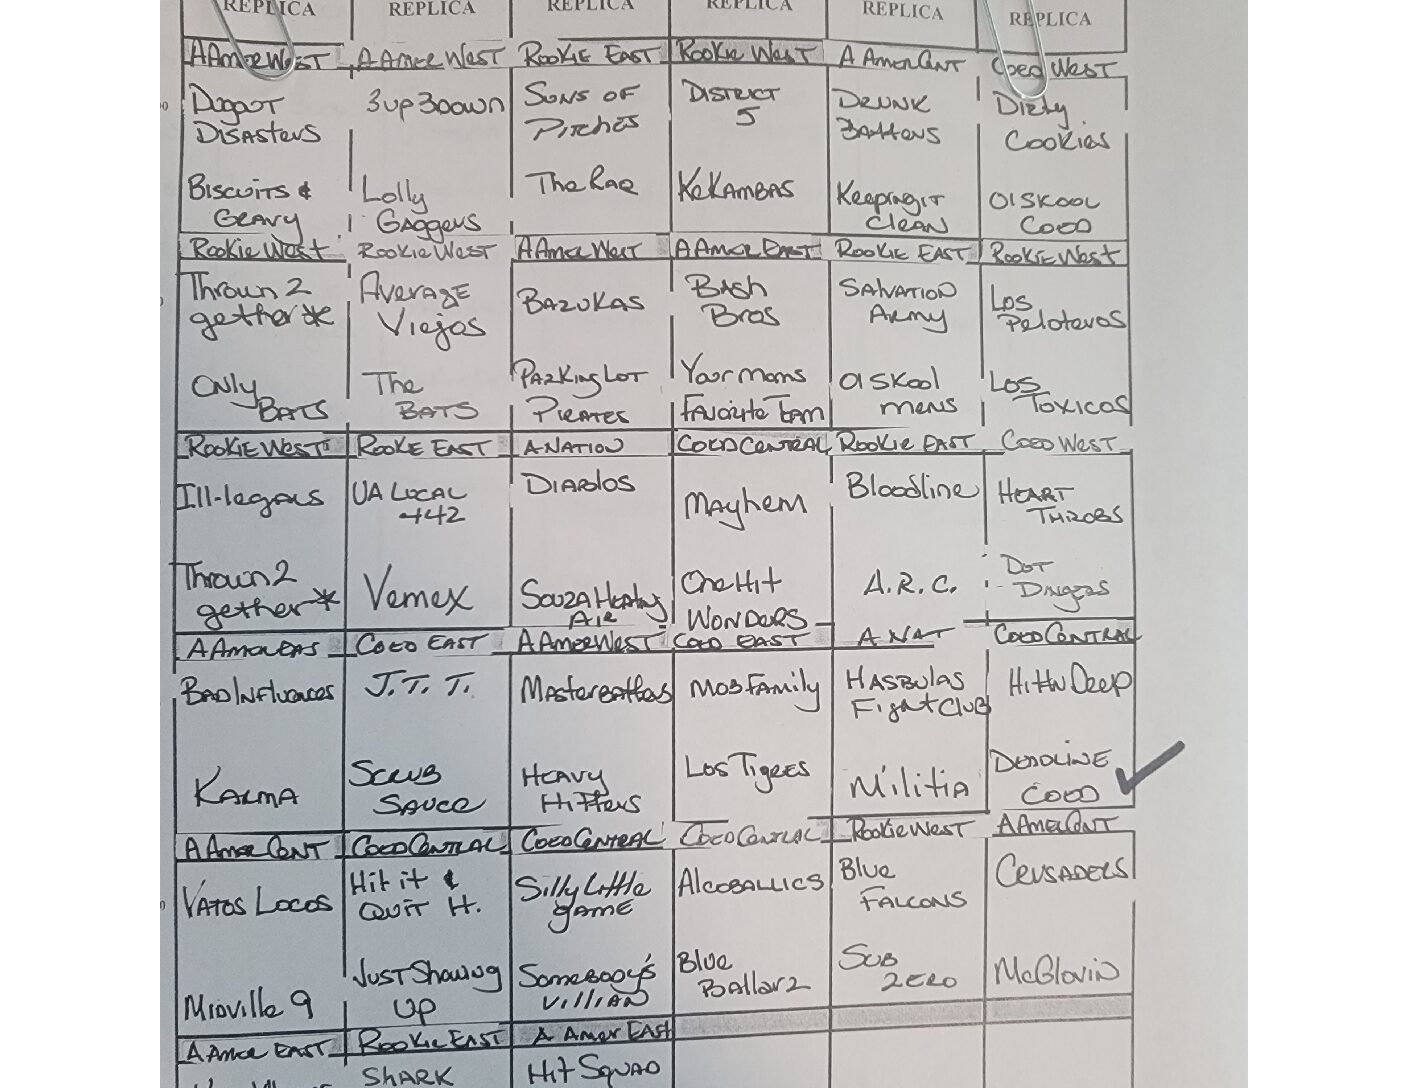 REPLICA REPLICA REPLICA REPLICA REPLICA REPLICA
AAmerWest AAmerWest Rookie East Rookie West AAmerCent Coed West
Dugout 3up3down Sons of District Drunk Dirty
Disasters Pitches 5 Batters Cookies
Biscuits & Lolly The Rae KeKambas Keepingit OlSkool
Gravy Gaggers Clean Coed
Rookie West Rookie West AAmerWest AAmerEast Rookie East Rookie West
Thrown 2 Average Bazukas Bash Salvation Los
gether* Viejos Bros Army Peloteros
Only The Parking Lot Your moms Ol Skool Los
Bats Bats Pirates Favorite Team mens Toxicos
Rookie West Rookie East A-Nation Coed Central Rookie East Coed West
Ill-legals UA Local Diablos Mayhem Bloodline Heart
442 Throbs
Thrown 2 Vemex Souza Heating One Hit A.R.C. Dot
gether* Air Wonders Dingers
AAmerEas Coed East AAmerWest Coed East A Nat Coed Central
Bad Influences J.T.T. Masterbatters Mob Family Hasbulas Hittn Deep
Fight Club
Karma Scrub Heavy Los Tigres Militia Deadline
Sauce Hitters Coed ✓
AAmerCent Coed Central Coed Central Coed Central Rookie West AAmerCent
Vatos Locos Hit it & Silly Little Alcoballics Blue Crusaders
Quit H. game Falcons
Mioville 9 Just Showing Somebody's Blue Sub McGlovin
Up Villian Ballarz Zero
AAmer East Rookie East A Amer East
Shark Hit Squad